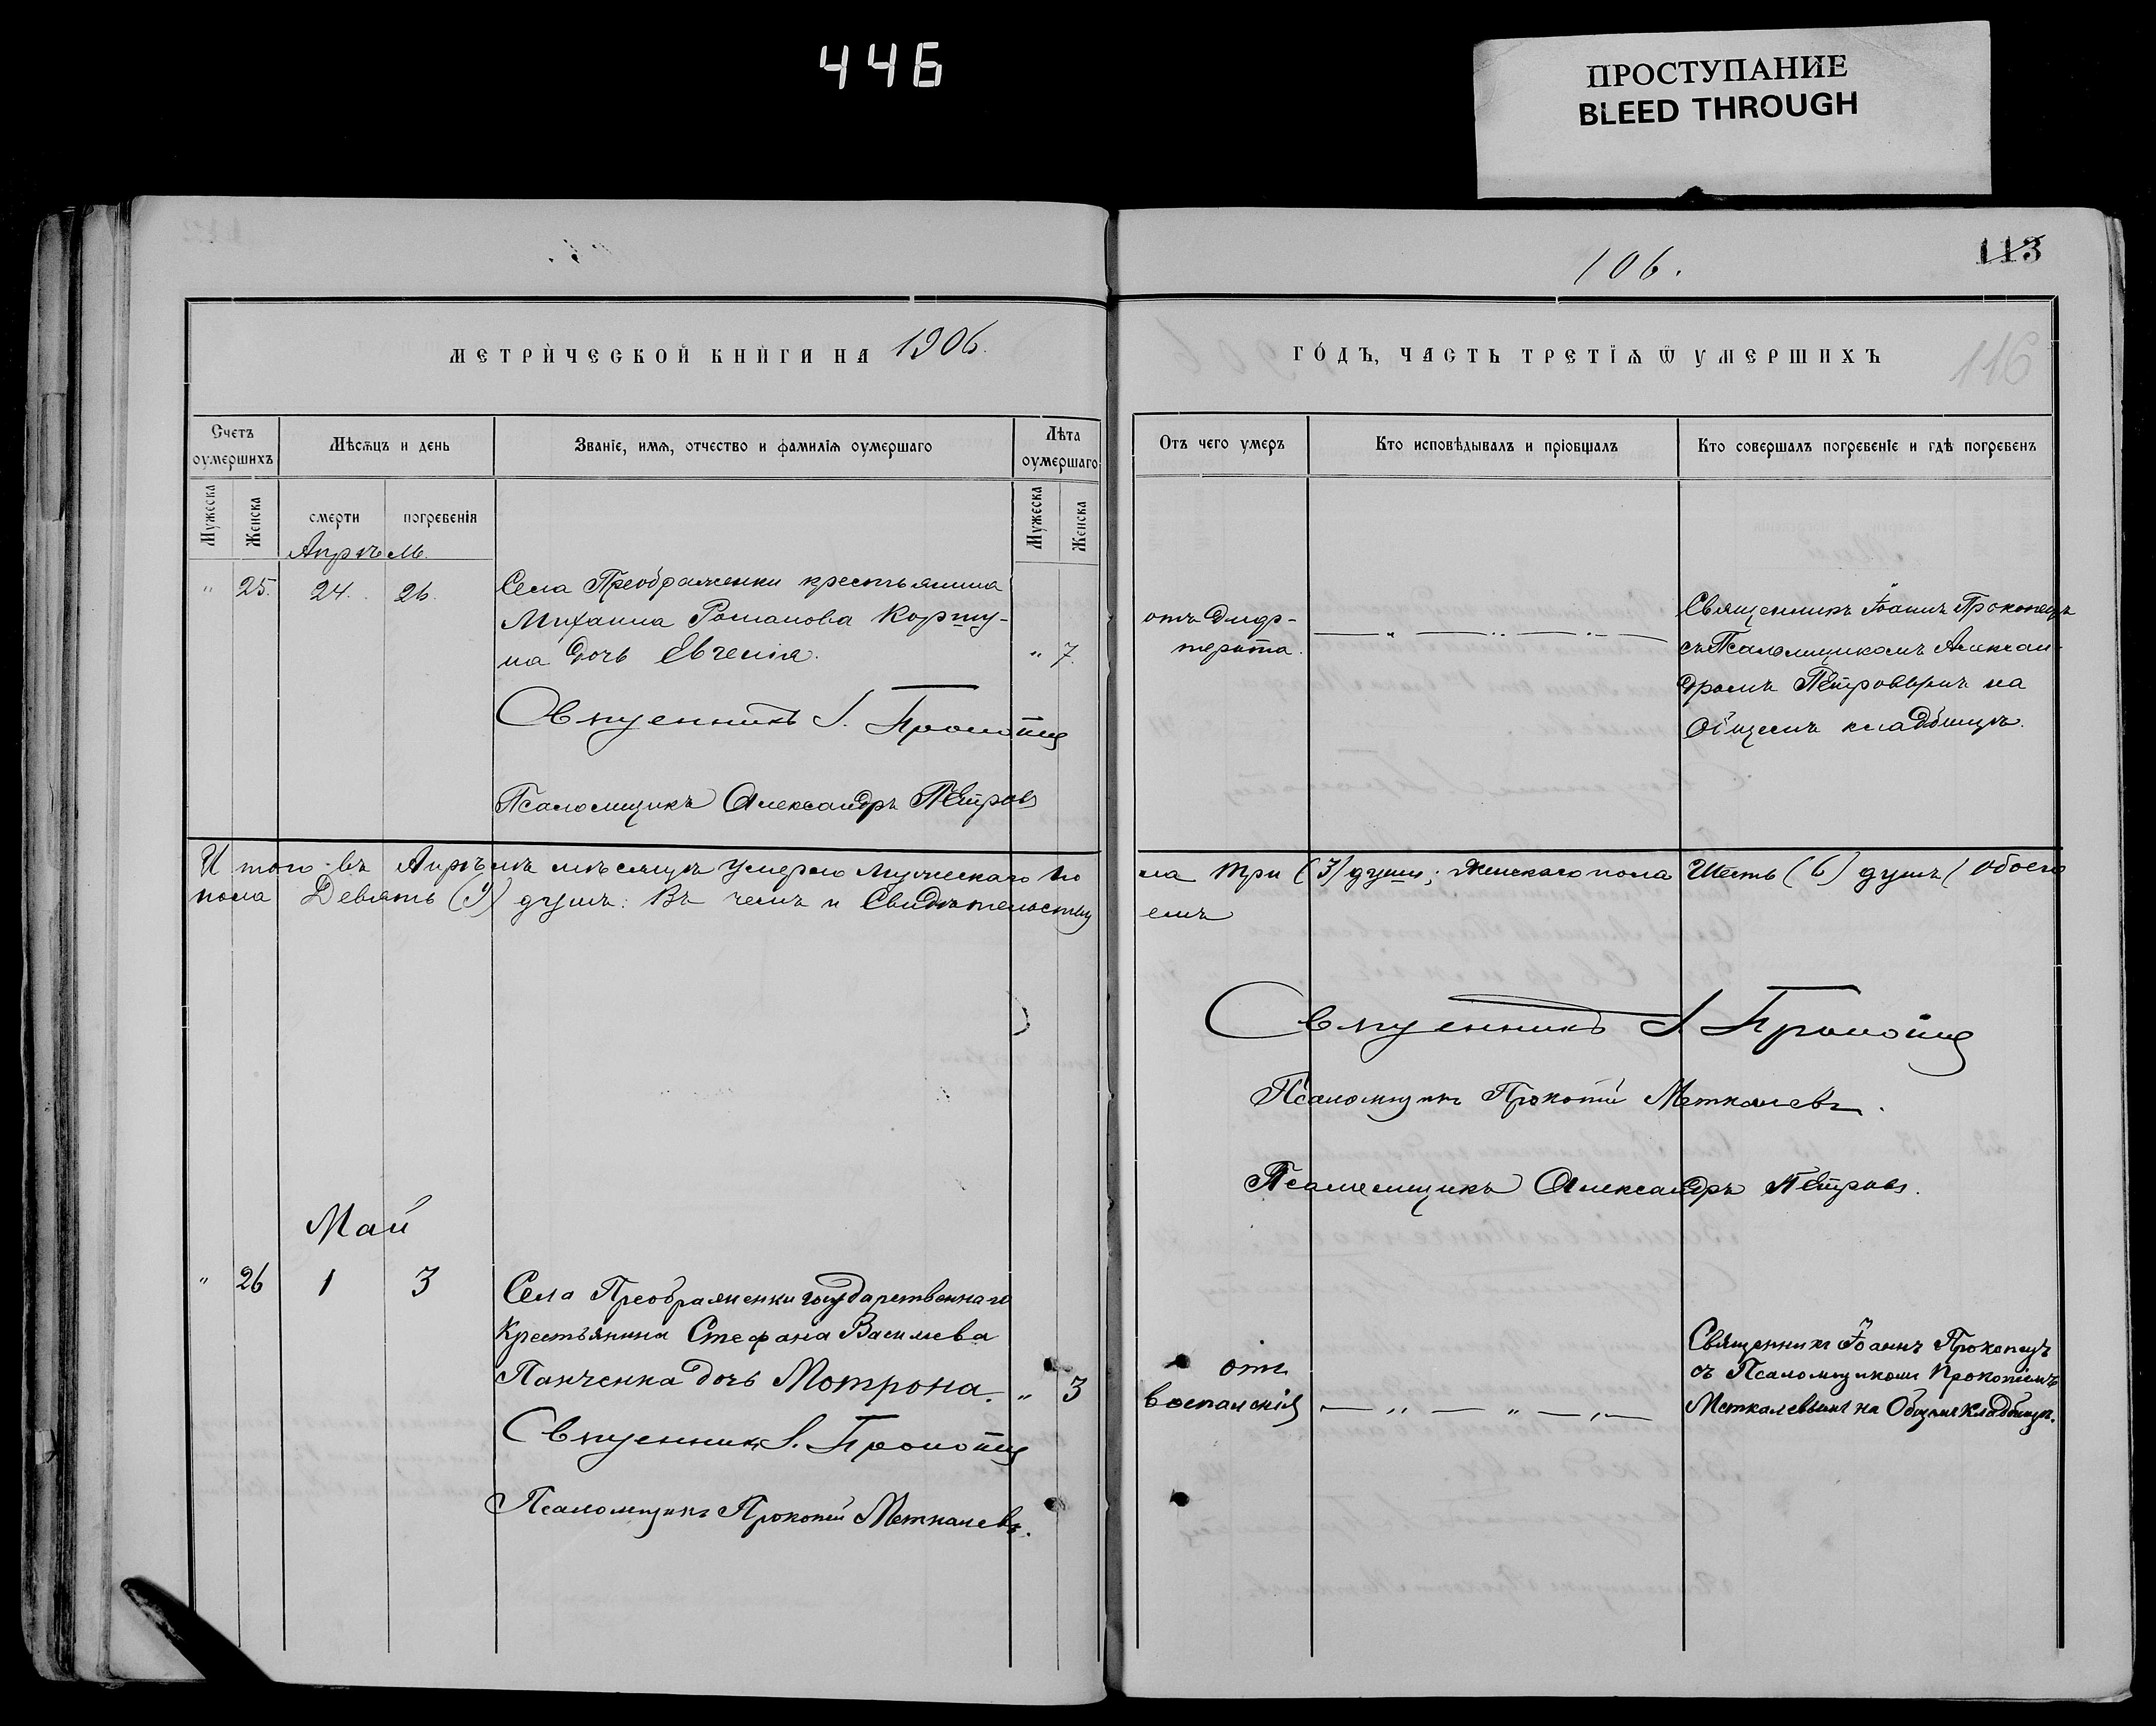 446
ПРОСТУПАНИЕ
BLEED THROUGH
113
106.
116
МЕТРИЧЕСКОЙ КНИГИ НА 1906.
ГОДЪ, ЧАСТЬ ТРЕТІѦ Ѿ УМЕРШИХЪ
Счетъ оумершихъ
Мѣсѧцъ и день
Званіе, имѧ, отчество и фамиліѧ оумершаго
Лѣта оумершаго
Отъ чего умеръ
Кто исповѣдывалъ и пріобщалъ
Кто совершалъ погребеніе и гдѣ погребенъ
Мужеска
Женска
смерти
погребенія
Мужеска
Женска
Апрѣль.
" 25. 24. 26.
Села Преображенки крестьянина
Михаила Романова Коршу-
на дочь Евгенія. " 7.
Священникъ І. Прокопец
Псаломщикъ Александръ Петровъ
отъ Диф-
терита.
Священникъ Іоаннъ Прокопецъ
съ Псаломщикомъ Алексан-
дромъ Петровымъ на
Общемъ кладбищѣ.
Итого въ Апрѣлѣ мѣсяцѣ умерло мужескаго по
ла три (3) души; Женскаго пола Шесть (6) душъ (Обоего
пола Девять (9) душъ: Въ чемъ и Свидѣтельству
емъ
Священникъ І. Прокопец
Псаломщикъ Прокопій Меткалевъ.
Псаломщикъ Александръ Петровъ.
Май
" 26 1 3
Села Преображенки государственнаго
Крестьянина Стефана Василиева
Панченка дочь Мотрона. " 3
Священникъ І. Прокопец
Псаломщикъ Прокопій Меткалевъ.
отъ
воспаленія
Священникъ Іоаннъ Прокопецъ
съ Псаломщикомъ Прокопіемъ
Меткалевымъ на Общемъ Кладбищѣ.